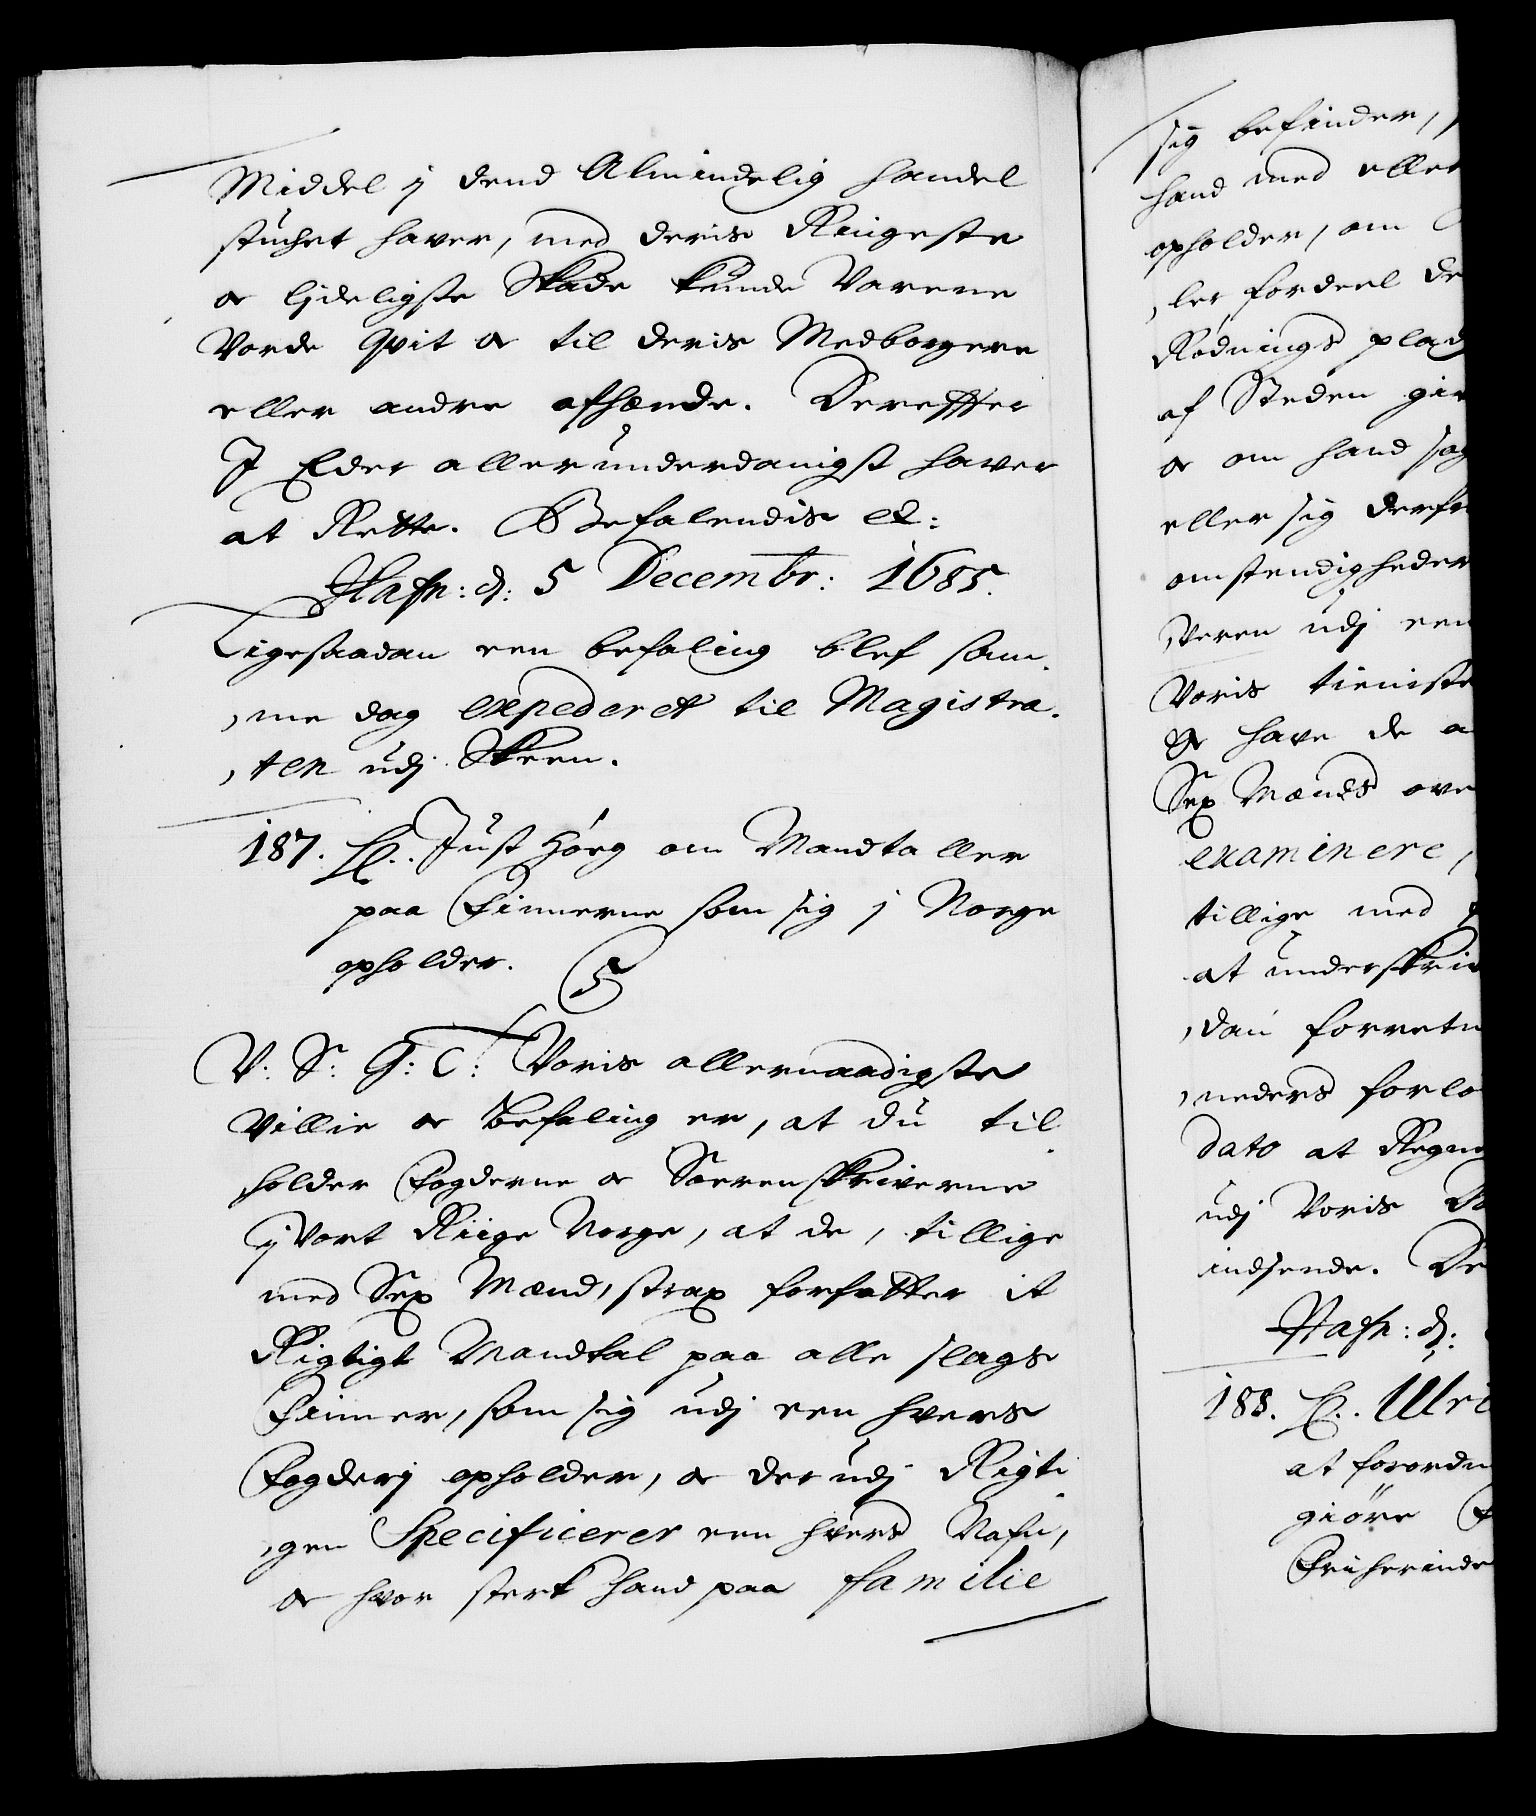 Middel j dend Almindelig handel
stuchet haver, med deris Ringeste
oc lideligste Skade kunde Varene
Vorde qvit oc til deris Medborgere
eller andre afhænde. Dereffter
I Eder allerunderdanigst haver
at Rette. Befalendis etc:
Hafn: d: 5 Decembr: 1685.
Ligesaadan een befaling blef sam¬
,me dag expederet til Magistra¬
,ten udj Skeen.
187. Just Høeg om Mandtaller
paa Finnerne som sig j Norge
opholder. 5
V: S: G: T: Voris allernaadigste
Villie oc Befaling er, at du til¬
holder Fogderne oc Sorenskriverne
j Vort Riige Norge, at de, tillige
med Sex Mænd, strax forfatter it
Rigtigt Mandtal paa alle slags
Finner, som sig udj een hvers
Fogderj opholder, oc der udj Rigti¬
,gen Specificerer een hvers Nafn,
oc hvor sterk hand paa familie
sig befinder,
hand med eller
opholder, om
,ler fordeel de
Rødnings plad
af Steden giv
oc om hand
eller sig derfr
omstendigheder
,veren udj een
Voris tieniste
Oc have de a
Sex Mænds ove
examinere,
tillige med
at underskriv
,dan forretn
,neders forlø
dato at Regne
udj Voris
indsende. De
Hafn: d:
188. Ulri
at forordn
giöre F
Friherinde